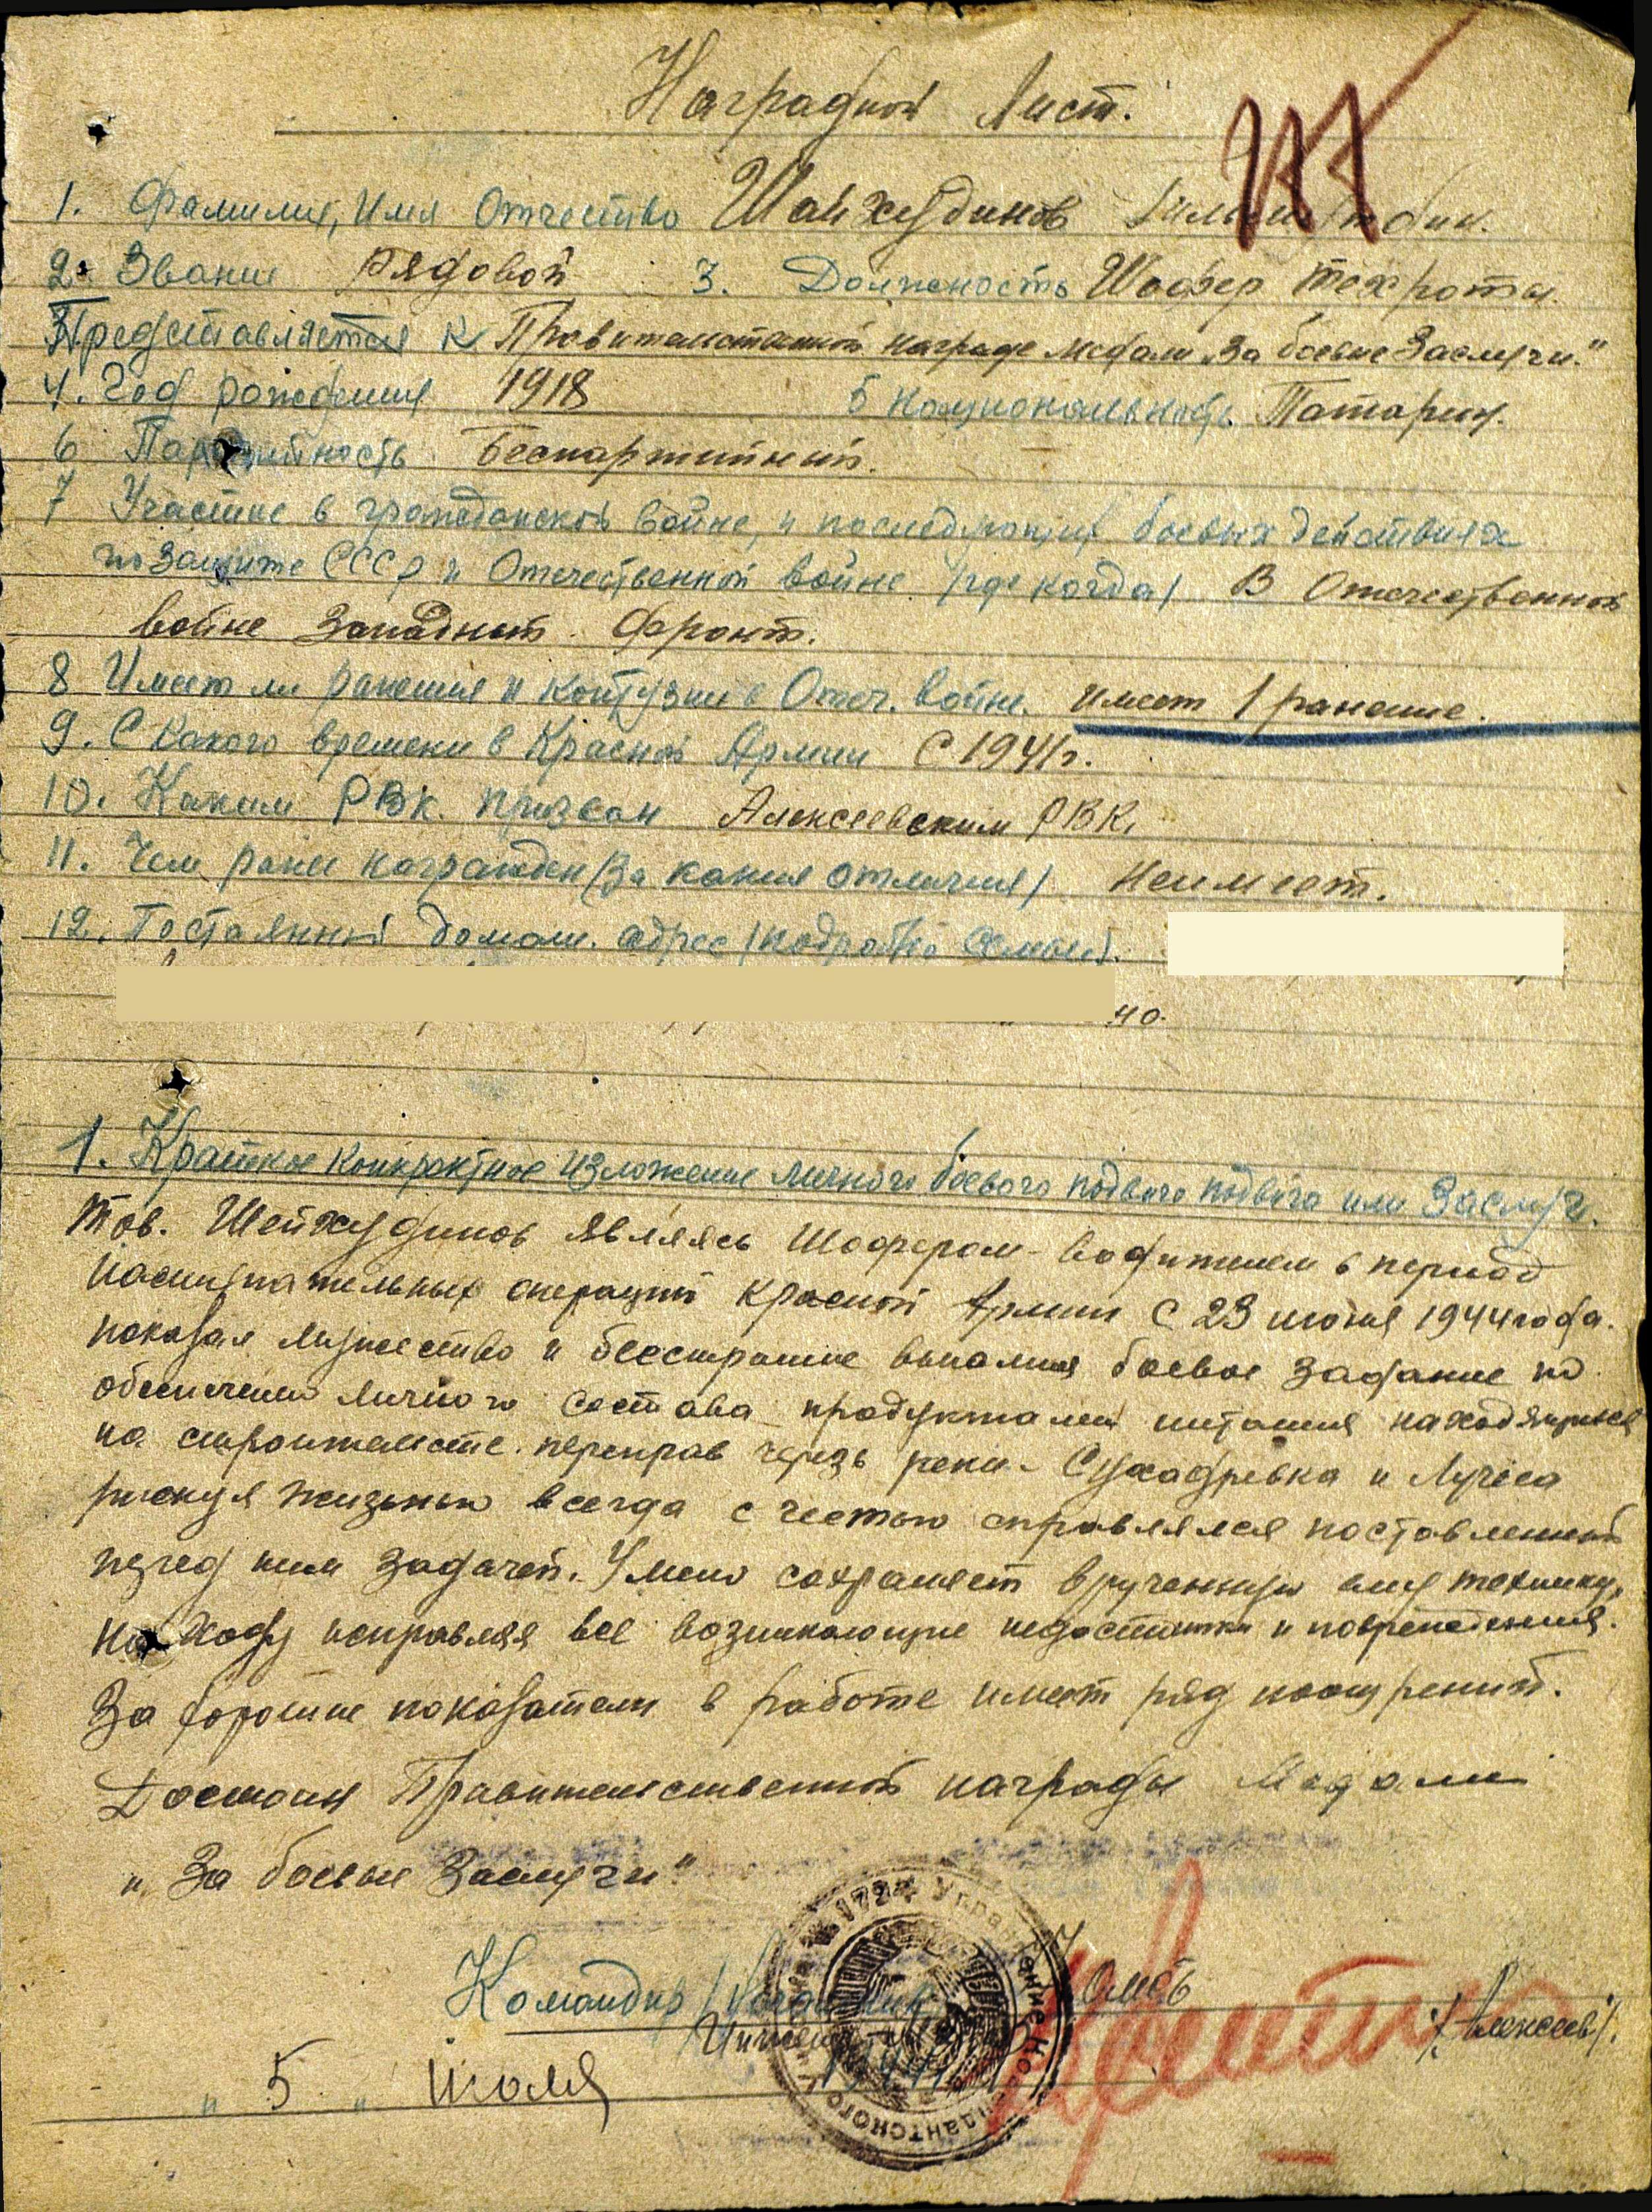 Наградной Лист.
1. Фамилия, Имя Отчество Шайхудинов
2. Звание Рядовой 3. Должность Шофер техроты.
Представляется к Правительственной награде медали „За боевые Заслуги."
4. Год рождения 1918 5 Национальность Татарин.
6 Партийность Беспартийный.
7 Участие в гражданской войне, и последующих боевых действиях
по защите СССР и Отечественной войне /где когда/ В Отечественной
войне Западный Фронт.
8 Имеет ли ранения и контузии в Отеч. войне. имеет 1 ранение.
9. С какого времени в Красной Армии С 1941г.
10. Каким РВК. призван Алексеевским РВК,
11. Чем ранее награжден (За какия отличия) Неимеет.
12. Постоянный домаш. адрес /подробно семьи/.
но.
1. Краткое конкректное изложение личного боевого подвига подвига или Заслуг.
Тов. Шейхудинов являясь Шофером-Водителем в период
наступательных операций Красной Армии с 23 июня 1944 года.
показал мужество и бесстрашие выполняя боевое Задание по
обеспечению личного состава продуктами питания находящихся
на строительстве переправ через реки - Суходревка и Лучеса
рискуя жизнью всегда с честью справлялся поставленной
перед ним Задачей. Умело сохраняет врученную ему технику,
на ходу исправляя все возникающие недостатки и повреждения.
За хорошие показатели в работе имеет ряд поощрений.
Достоин Правительственной награды Медали
„За боевые Заслуги"
Командир /Начальник
/Алексеев/.
„5„ Июля 1944